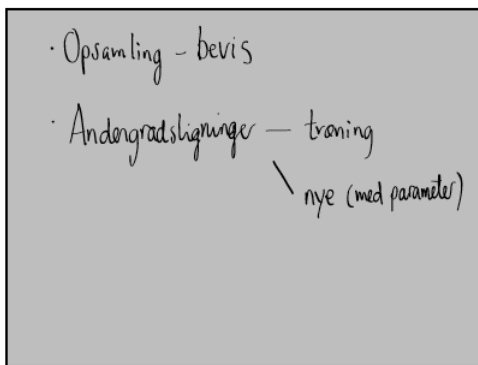 · Opsamling – bevis
· Andengradsligninger — træning
nye (med parameter)